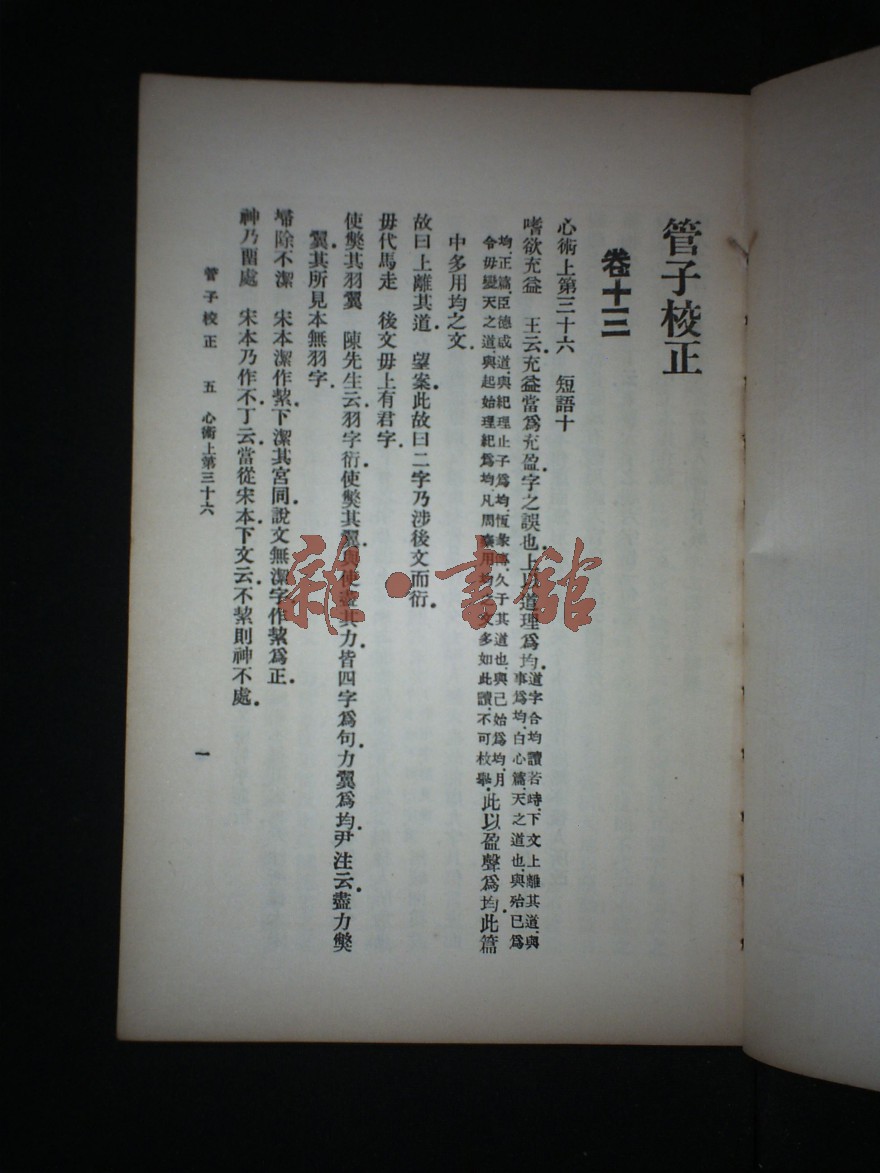 管子校正
卷十三
心術上第三十六　短語十
嗜欲充益　王云充益當爲充盈字之誤也上以道理爲均道字合均讀若峙下文上離其道與
事爲均白心篇天之道也與殆已爲
均正篇臣德咸道與紀理止子爲均恆彖傳久于其道也與已始爲均月
令毋變天之道與起始理紀爲均凡周秦用均之文多如此讀不可枚舉此以盈聲爲均此篇
中多用均之文
故曰上離其道　望案此故曰二字乃涉後文而衍
毋代馬走　後文毋上有君字
使獘其羽翼　陳先生云羽字衍使獘其翼與使盡其力皆四字爲句力翼爲均尹注云盡力獘
翼其所見本無羽字
埽除不潔　宋本潔作絜下潔其宮同說文無潔字作絜爲正
神乃畱處　宋本乃作不丁云當從宋本下文云不絜則神不處
管子校正　五　心術上第三十六
一
雜·書館